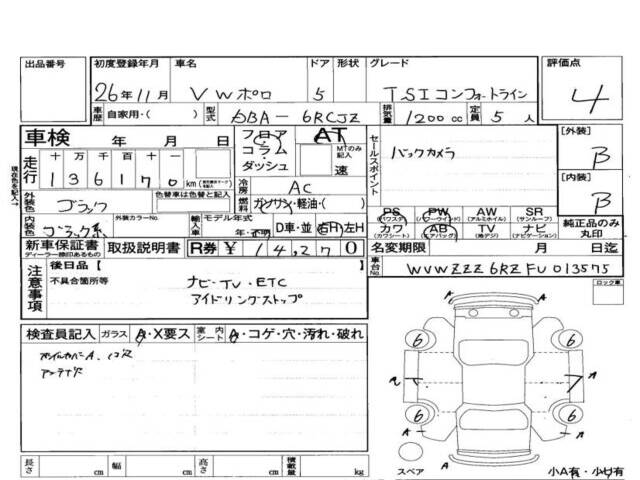 出品番号 初度登録年月 車名 ドア 形状 グレード 評価点
26年11月 VWポロ 5 TSIコンフォートライン 4
車歴 自家用・( ) 型式 DBA-6RCJZ 排気量 1200cc 定員 5人
車検 年 月 日 フロア コラム ダッシュ AT MTのみ記入 速 セールスポイント [外装] B
走行 十万千百十一 136170 km
冷房 AC バックカメラ
現在色を記入→ 外装色 ブラック 色替車は色替と記入 燃料 ガソリン・軽油・( ) [内装] B
PS (パワステ) PW (パワーウインド) AW (アルミホイル) SR (サンルーフ)
内装色 ブラック系 外装カラーNo. 輸入車 モデル年式 年・不明 D車・並 右H 左H
カワ (カワシート) AB (エアバッグ) TV (地デジ) ナビ (ナビゲーション) 純正品のみ丸印
新車保証書 ディーラー捺印あるもの 取扱説明書 R券 ¥14,270 名変期限 月 日迄
注意事項 後日品 [ ] 車台No. WVWZZZ6RZFU013575
不具合箇所等 ナビ・TV・ETC ロック車
アイドリングストップ
検査員記入 ガラス A・X要ス 室内シート A・コゲ・穴・汚れ・破れ
ホイルカバーA、
アンテナ
A
6 6
A
6 6
A A
A
スペア 小A有・小U有
長さ cm 幅 cm 高さ cm 積載量 kg